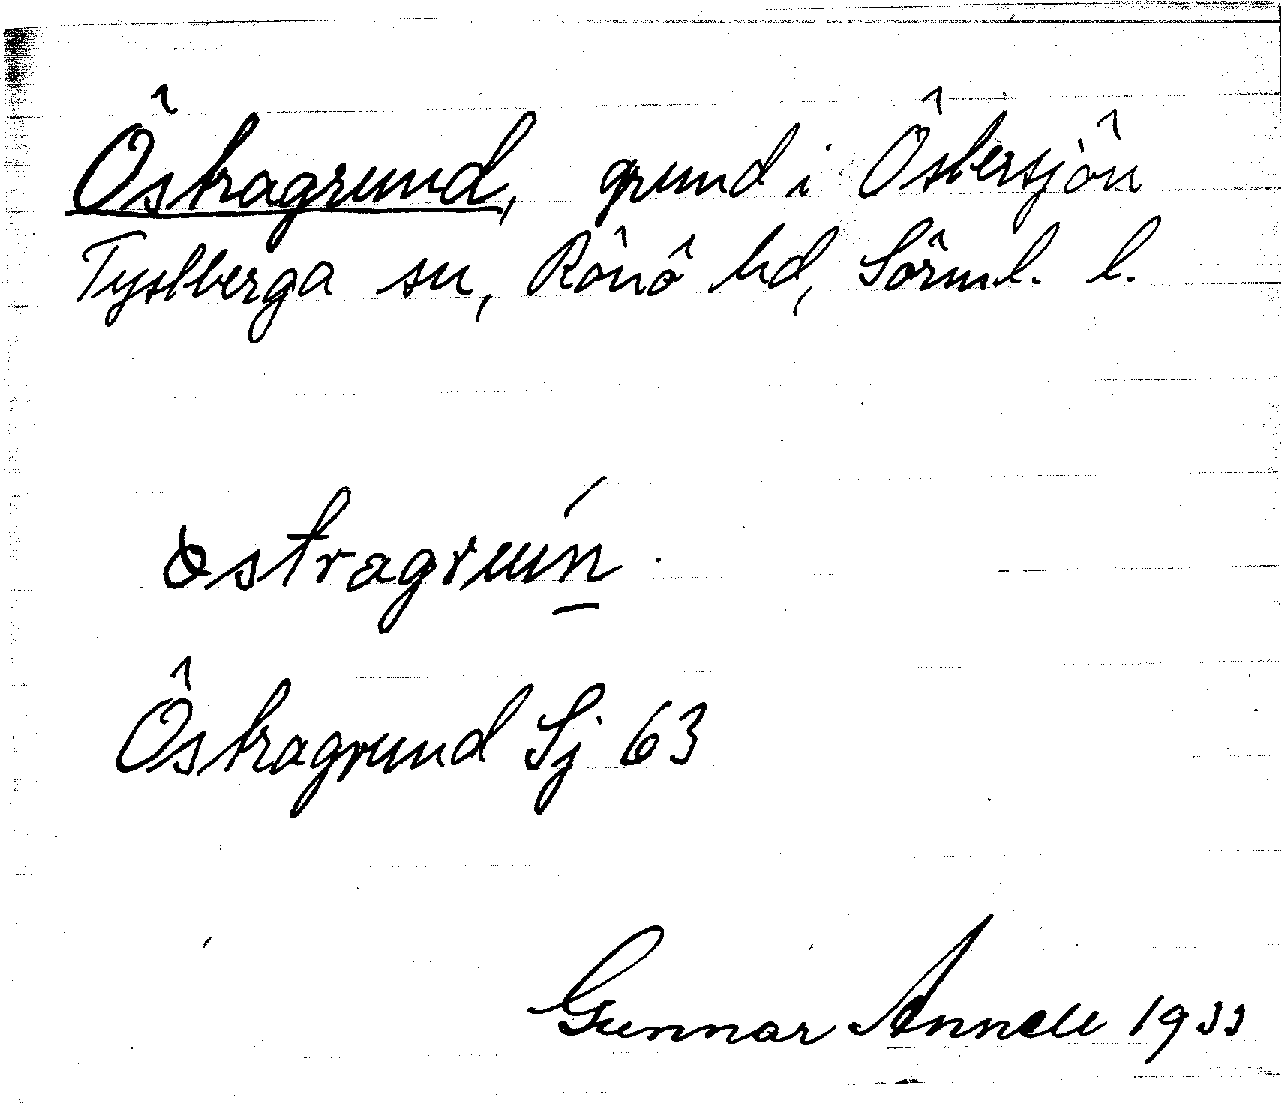 Östragrund, grund i Östersjön
Tystberga sn, Rönö hd, Sörml. l.
östragruǹn
Östragrund Sj 63
Gunnar Annell 1933